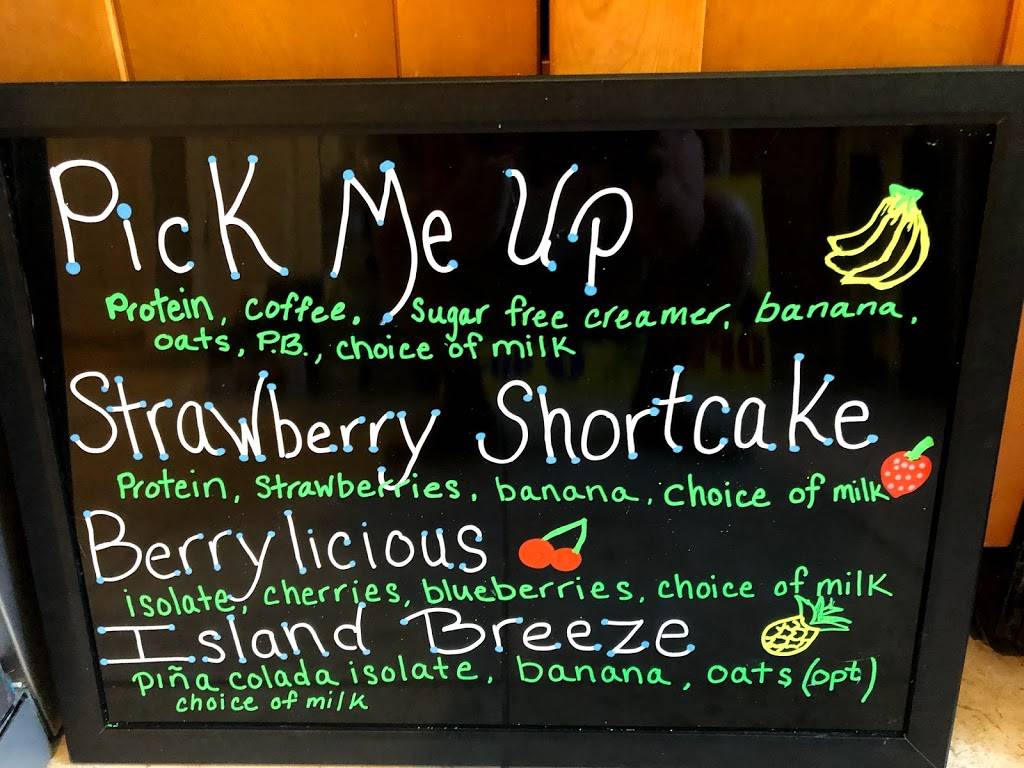 Pick Me Up
Protein, coffee, sugar free creamer, banana,
oats, P.B., choice of milk
Strawberry Shortcake
Protein, strawberries, banana, choice of milk
Berrylicious
isolate, cherries, blueberries, choice of milk
Island Breeze
piña colada isolate, banana, oats (opt)
choice of milk